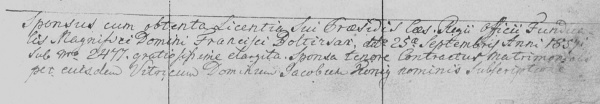 Sponsus cum obtenta Licentia Sui Præsidis Cæs. Regii Officii Fundua
lis Magnifici Domini Francisci Boltersar, ddto 25a Septembris Anni
sub Nro 2477. gratiosissime elargita. Sponsa tenore Contractus Matrimonialis
per ejusdem Vitricum Dominum Jacobum König nominis Subscriptione